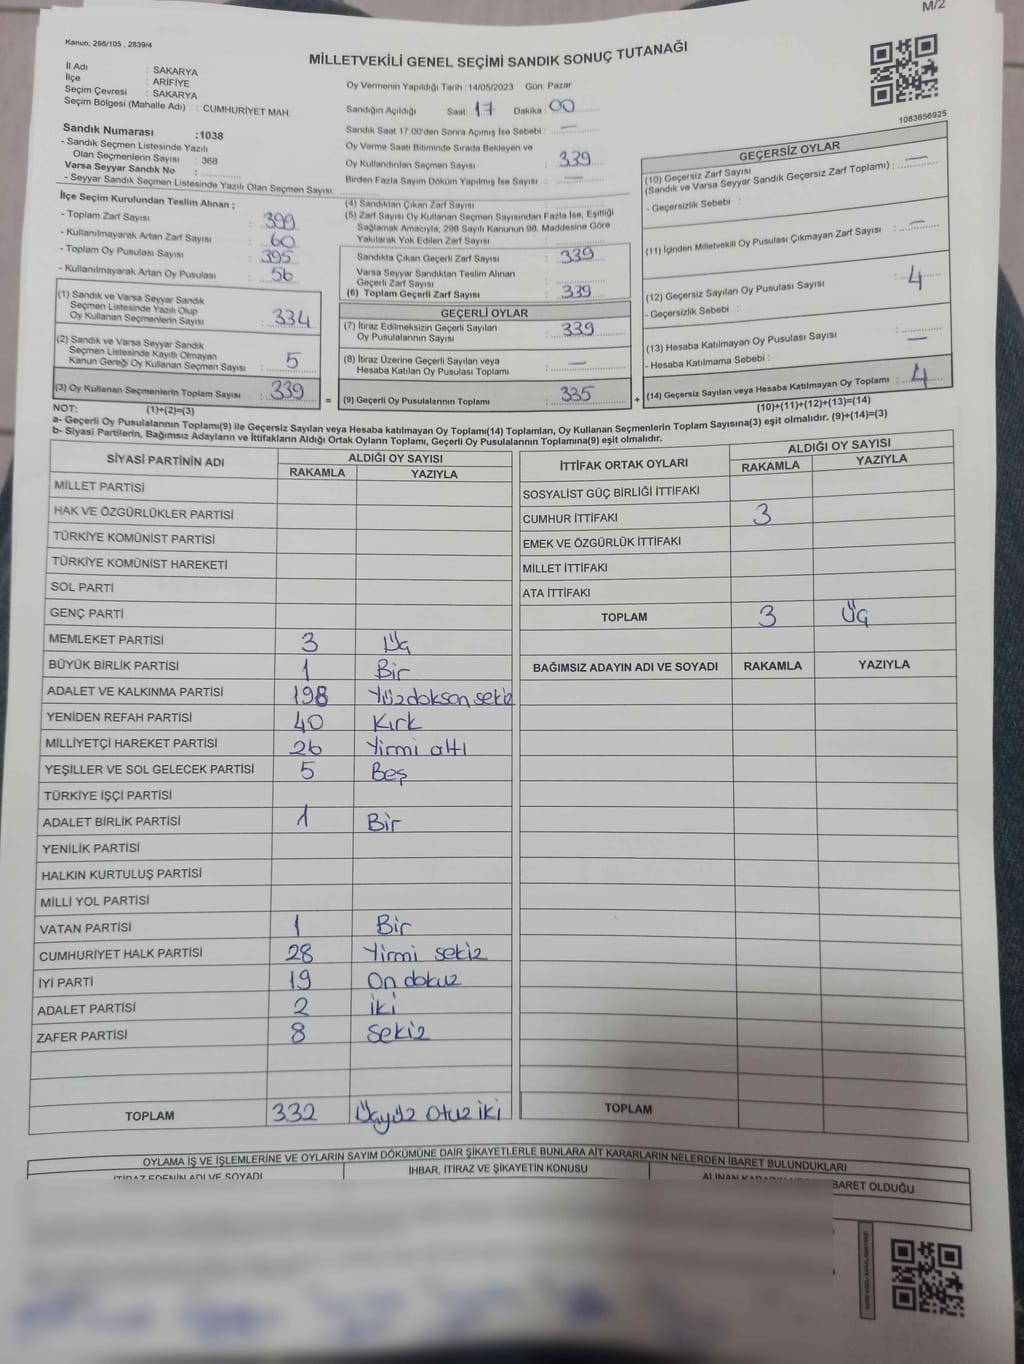 M/2
Kanun: 298/105 , 2839/4
MİLLETVEKİLİ GENEL SEÇİMİ SANDIK SONUÇ TUTANAĞI
İl Adı : SAKARYA
İlçe : ARİFİYE
Seçim Çevresi : SAKARYA
Seçim Bölgesi (Mahalle Adı) : CUMHURİYET MAH.
Sandık Numarası :1038
- Sandık Seçmen Listesinde Yazılı
Olan Seçmenlerin Sayısı : 368
Varsa Seyyar Sandık No :
- Seyyar Sandık Seçmen Listesinde Yazılı Olan Seçmen Sayısı:
Oy Vermenin Yapıldığı Tarih : 14/05/2023 Gün: Pazar
Sandığın Açıldığı Saat: 17 Dakika: 00
Sandık Saat 17.00'den Sonra Açımış İse Sebebi : —
Oy Verme Saati Bitiminde Sırada Bekleyen ve
Oy Kullandırılan Seçmen Sayısı : 339
Birden Fazla Sayım Döküm Yapılmış İse Sayısı : —
1083656925
İlçe Seçim Kurulundan Teslim Alınan ;
- Toplam Zarf Sayısı : 399
- Kullanılmayarak Artan Zarf Sayısı : 60
- Toplam Oy Pusulası Sayısı : 395
- Kullanılmayarak Artan Oy Pusulası : 56
(1) Sandık ve Varsa Seyyar Sandık
Seçmen Listesinde Yazılı Olup
Oy Kullanan Seçmenlerin Sayısı : 334
(2) Sandık ve Varsa Seyyar Sandık
Seçmen Listesinde Kayıtlı Olmayan
Kanun Gereği Oy Kullanan Seçmen Sayısı : 5
(3) Oy Kullanan Seçmenlerin Toplam Sayısı : 339
(4) Sandıktan Çıkan Zarf Sayısı :
(5) Zarf Sayısı Oy Kullanan Seçmen Sayısından Fazla İse, Eşitliği
Sağlamak Amacıyla, 298 Sayılı Kanunun 98. Maddesine Göre
Yakılarak Yok Edilen Zarf Sayısı :
Sandıkta Çıkan Geçerli Zarf Sayısı : 339
Varsa Seyyar Sandıktan Teslim Alınan
Geçerli Zarf Sayısı :
(6) Toplam Geçerli Zarf Sayısı : 339
GEÇERLİ OYLAR
(7) İtiraz Edilmeksizin Geçerli Sayılan
Oy Pusulasının Sayısı : 339
(8) İtiraz Üzerine Geçerli Sayılan veya
Hesaba Katılan Oy Pusulası Toplamı : —
= (9) Geçerli Oy Pusulalarının Toplamı : 335 +
GEÇERSİZ OYLAR
(10) Geçersiz Zarf Sayısı
(Sandık ve Varsa Seyyar Sandık Geçersiz Zarf Toplamı) : —
- Geçersizlik Sebebi :
(11) İçinden Milletvekili Oy Pusulası Çıkmayan Zarf Sayısı : —
(12) Geçersiz Sayılan Oy Pusulası Sayısı : 4
- Geçersizlik Sebebi :
(13) Hesaba Katılmayan Oy Pusulası Sayısı : —
- Hesaba Katılmama Sebebi :
(14) Geçersiz Sayılan veya Hesaba Katılmayan Oy Toplamı : 4
NOT: (1)+(2)=(3) (10)+(11)+(12)+(13)=(14)
a- Geçerli Oy Pusulalarının Toplamı(9) ile Geçersiz Sayılan veya Hesaba katılmayan Oy Toplamı(14) Toplamları, Oy Kullanan Seçmenlerin Toplam Sayısına(3) eşit olmalıdır. (9)+(14)=(3)
b- Siyasi Partilerin, Bağımsız Adayların ve İttifakların Aldığı Ortak Oyların Toplamı, Geçerli Oy Pusulalarının Toplamına(9) eşit olmalıdır.
SİYASİ PARTİNİN ADI ALDIĞI OY SAYISI
RAKAMLA YAZIYLA
MİLLET PARTİSİ
HAK VE ÖZGÜRLÜKLER PARTİSİ
TÜRKİYE KOMÜNİST PARTİSİ
TÜRKİYE KOMÜNİST HAREKETİ
SOL PARTİ
GENÇ PARTİ
MEMLEKET PARTİSİ 3 Üç
BÜYÜK BİRLİK PARTİSİ 1 Bir
ADALET VE KALKINMA PARTİSİ 198 Yüzdoksan sekiz
YENİDEN REFAH PARTİSİ 40 Kırk
MİLLİYETÇİ HAREKET PARTİSİ 26 Yirmi altı
YEŞİLLER VE SOL GELECEK PARTİSİ 5 Beş
TÜRKİYE İŞÇİ PARTİSİ
ADALET BİRLİK PARTİSİ 1 Bir
YENİLİK PARTİSİ
HALKIN KURTULUŞ PARTİSİ
MİLLİ YOL PARTİSİ
VATAN PARTİSİ 1 Bir
CUMHURİYET HALK PARTİSİ 28 Yirmi sekiz
İYİ PARTİ 19 On dokuz
ADALET PARTİSİ 2 iki
ZAFER PARTİSİ 8 Sekiz
TOPLAM 332 Üçyüz otuz iki
İTTİFAK ORTAK OYLARI ALDIĞI OY SAYISI
RAKAMLA YAZIYLA
SOSYALİST GÜÇ BİRLİĞİ İTTİFAKI
CUMHUR İTTİFAKI 3
EMEK VE ÖZGÜRLÜK İTTİFAKI
MİLLET İTTİFAKI
ATA İTTİFAKI
TOPLAM 3 Üç
BAĞIMSIZ ADAYIN ADI VE SOYADI RAKAMLA YAZIYLA
TOPLAM
OYLAMA İŞ VE İŞLEMLERİNE VE OYLARIN SAYIM DÖKÜMÜNE DAİR ŞİKAYETLERLE BUNLARA AİT KARARLARIN NELERDEN İBARET BULUNDUKLARI
İTİRAZ EDENİN ADI VE SOYADI İHBAR, İTİRAZ VE ŞİKAYETİN KONUSU ALINAN BARET OLDUĞU